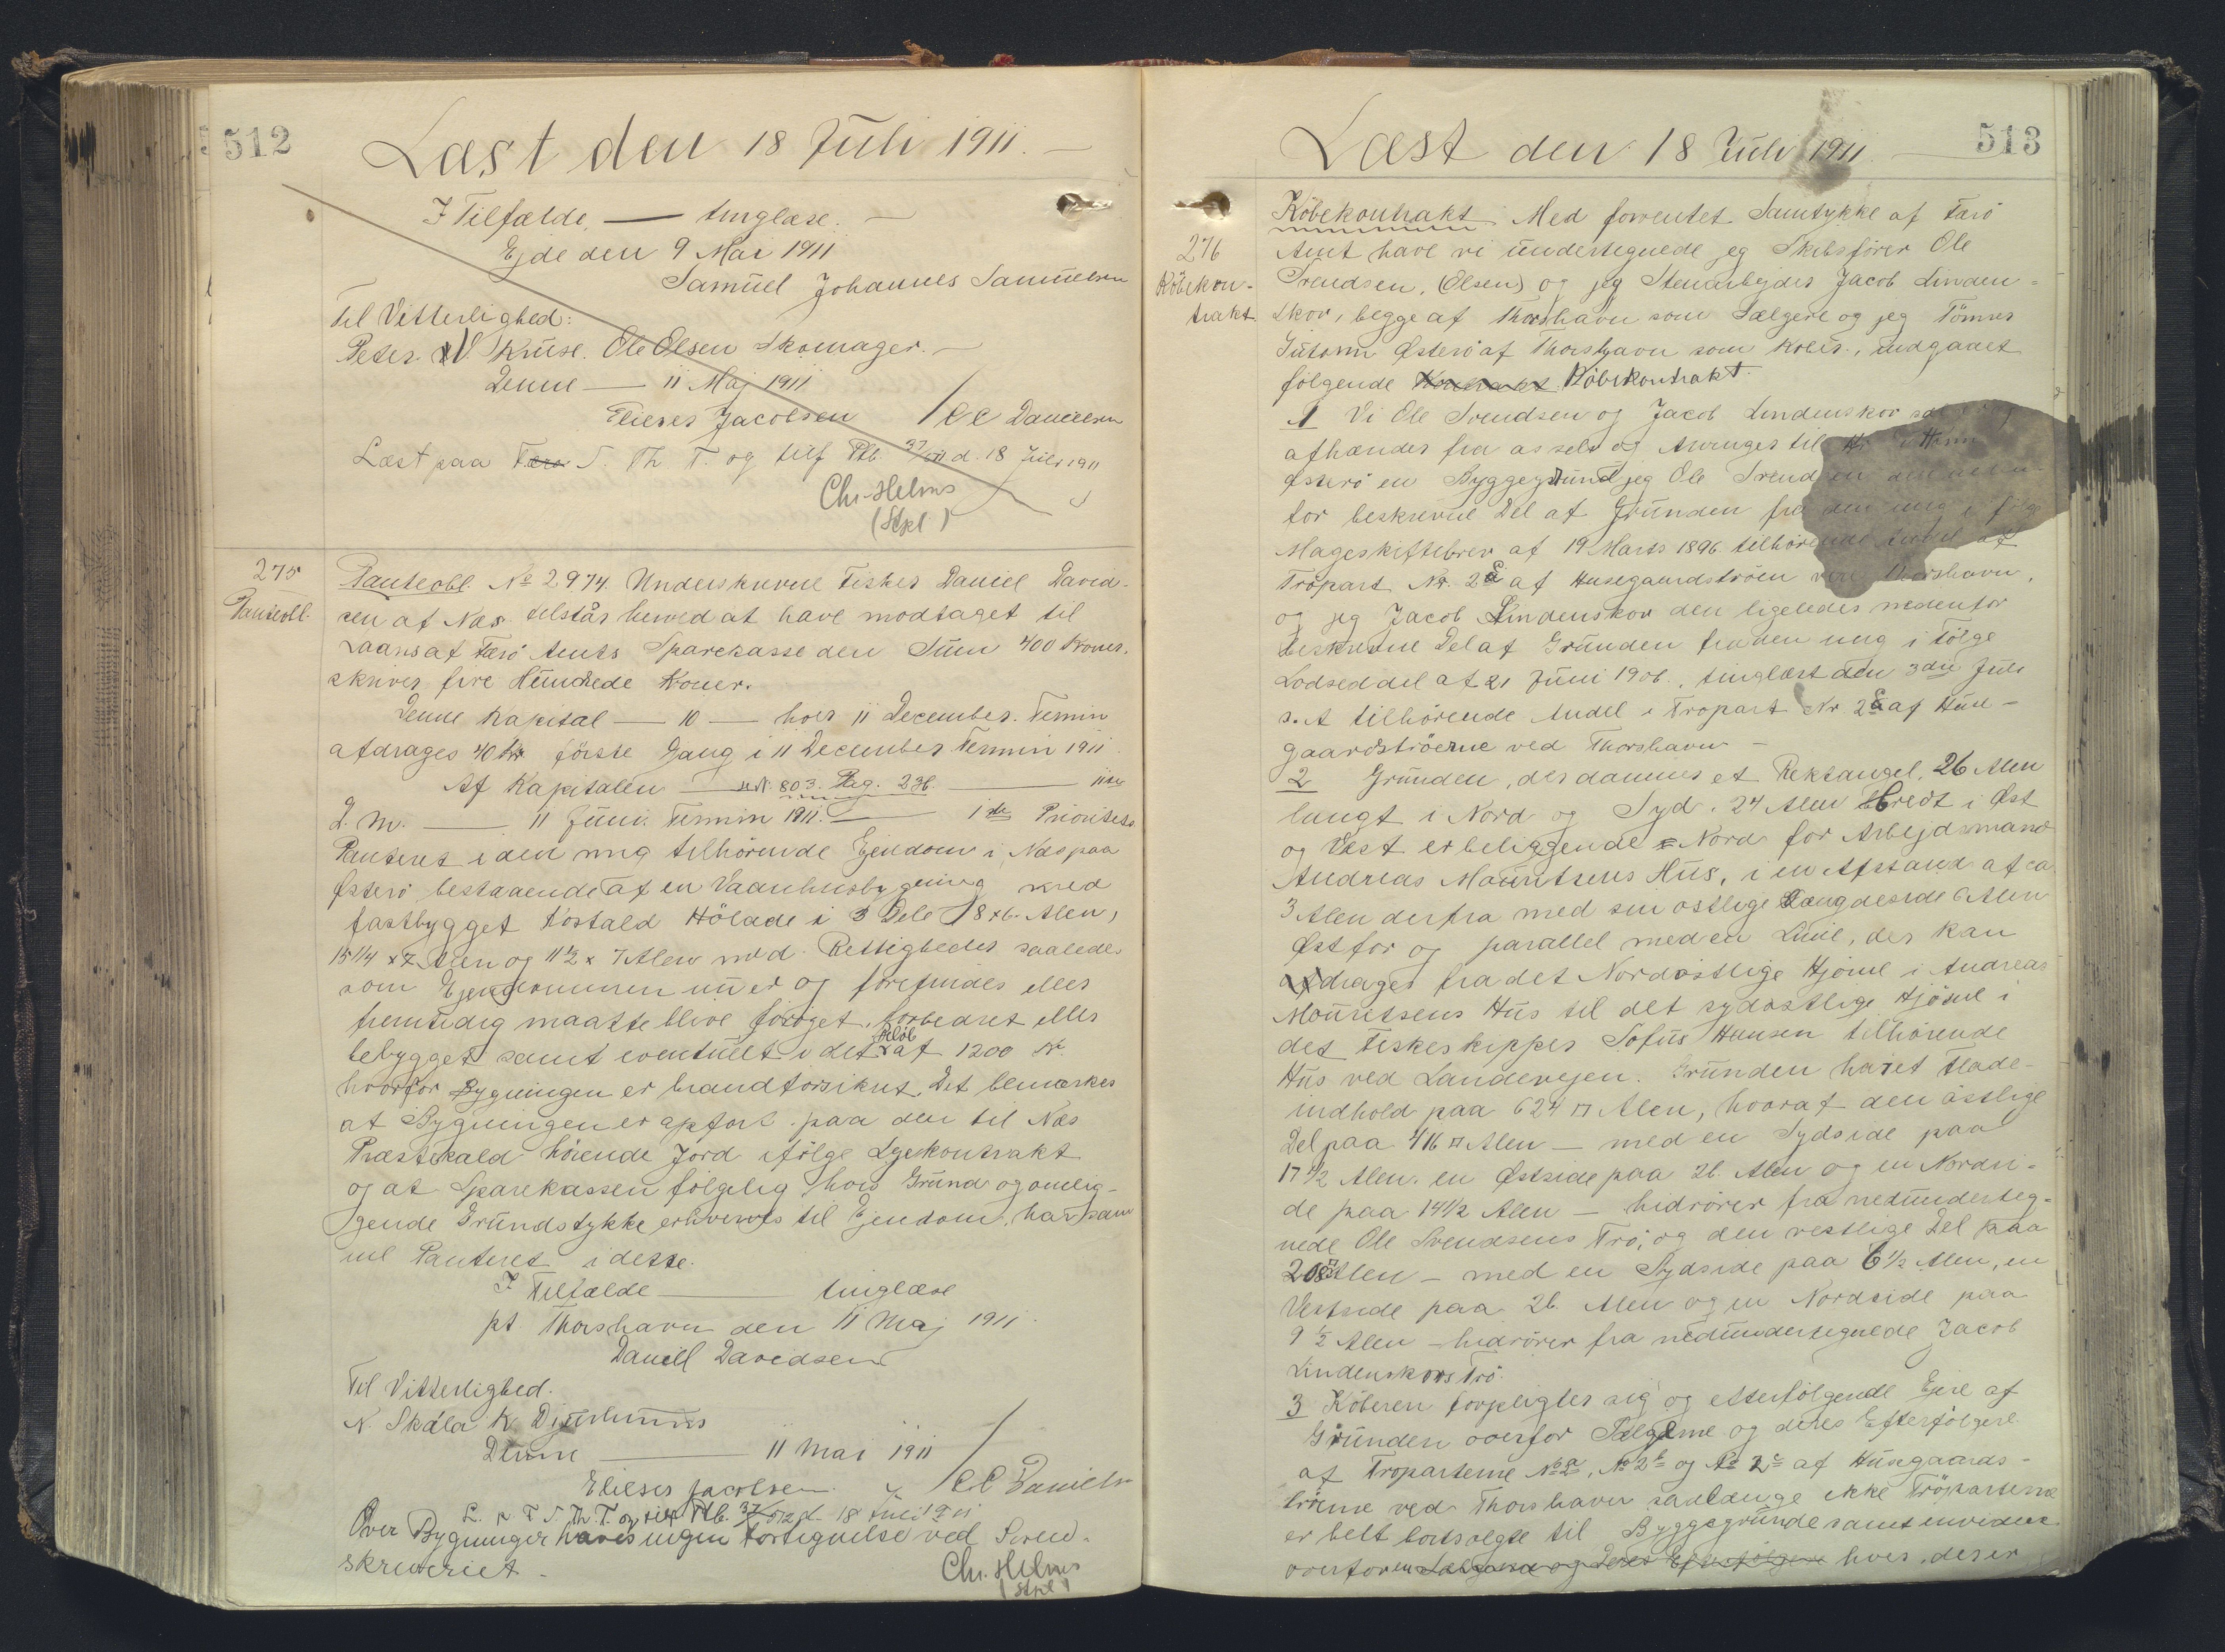 512
Læst den 18 Juli 1911.
I Tilfælde, — tinglæse.
Ejde den 9 Mai 1911
Samuel Johannes Samuelsen
Til Vitterlighed:
Peter V. Kruse. Ole Olsen Skomager.
Denne — 11 Maj 1911
Elieser Jacobsen / C C Danielsen
Læst paa Færø S. Th T. og tilf Ptb. 37/511 d. 18 Juli 1911
Chr. Helms
(Stpl)
275
Panteobl.
Panteobl. No 2974. Underskrevne Fisker Daniel David-
sen af Næs tilstår herved at have modtaget til
Laans af Færø Amts Sparekasse den Sum 400 Kroner,
skriver fire Hundrede Kroner.
Denne Kapital — 10 — hver 11 December Termin
afdrages 40 Kr første Gang i 11 December Termin 1911
Af Kapitalen — 803. Pag. 236 — 11te
D. M. — 11 Juni Termin 1911. — 1ste Prioritets
Panteret i den mig tilhörende Ejendom i Næs paa
Østerö bestaaende af en Vaanhusbygning med
fastbygget Kostald Hölade i 3 Dele 18 x 6 Alen,
15 1/4 x 7 Alen og 11 1/2 x 7 Alen med Rettigheder saaledes
som Ejendommen nu er og forefindes eller
fremtidig maatte blive foröget, forbedret eller
bebygget samt eventuelt i det Belöb af 1200 Kr.
hvorfor Bygningen er brandforsikret. Det bemærkes
at Bygningen er opfört paa den til Næs
Præstekald hörende Jord ifölge Lejekontrakt
og at Sparekassen fölgelig, hvis Grund og omlig-
gende Grundstykke erhverves til Ejendom, har sam
me Panteret i dette.
I Tilfælde — tinglæse
pt. Thorshavn den 11 Maj 1911.
Daniel Davidsen
Til Vitterlighed.
N. Skála K. Djurhuus
Denne — 11 Mai 1911
Elieser Jacobsen / C C Danielsen
L. p. F. S. Th. T. og tilf Ptb. 37/512 d. 18 Juli 1911
Over Bygninger haves ingen Fortegnelse ved Soren-
skriveriet.
Chr. Helms
(Stpl)
513
Læst den 18 Juli 1911.
276
Köbekon-
trakt
Köbekontrakt. Med forventet Samtykke af Færö
Amt have vi undertegnede jeg Skibsförer Ole
Svendsen, (Olsen) og jeg Stenarbejder Jacob Linden-
skov, begge af Thorshavn som Sælgere og jeg Tömrer
Guttorm Österö af Thorshavn som Köber, indgaaet
fölgende Kontrakt Köbekontrakt.
1 Vi Ole Svendsen og Jacob Lindenskov sælger og
afhænder fra os selv og Arvinger til
Österö en Byggegrund jeg Ole Svendsen den neden-
for beskrevne Del af Grunden fra den mig i fölge
Mageskiftebrev af 19 Marts 1896 tilhörende Andel af
Tröpart Nr. 2 a af Husegaardströen ved Thorshavn,
og jeg Jacob Lindenskov den ligeledes nedenfor
beskrevne Del af Grunden fra den mig i fölge
Lodseddel af 21 Juni 1906, tinglæst den 3die Juli
s. A tilhörende Andel i Tröpart Nr. 2 c af Huse-
gaardströerne ved Thorshavn —
2 Grunden, der danner et Rektangel, 26 Alen
langt i Nord og Syd, 24 Alen bredt i Öst
og Vest er beliggende Nord for Arbejdsmand
Andreas Mouritsens Hus, i en Afstand af ca
3 Alen derfra med sin östlige Længdeside 6 Alen
Öst for og parallel med en Linie, der kan
drages fra det Nordöstlige Hjörne i Andreas
Mouritsens Hus til det sydöstlige Hjörne i
det Fiskeskipper Sofus Hansen tilhörende
Hus ved Landevejen. Grunden har et Flade-
indhold paa 624 □ Alen, hvoraf den östlige
Del paa 416 □ Alen — med en Sydside paa
17 1/2 Alen, en Östside paa 26 Alen og en Nordsi-
de paa 14 1/2 Alen — hidrörer fra nedunderteg-
nede Ole Svendsens Trö, og den vestlige Del paa
208 □ Alen — med en Sydside paa 6 1/2 Alen, en
Vestside paa 26 Alen og en Nordside paa
9 1/2 Alen — hidrörer fra nedundertegnede Jacob
Lindenskovs Trö.
3 Köberen forpligter sig og efterfölgende Ejere af
Grunden overfor Sælgerne og deres Efterfölgere
af Tröparterne No 2 a, No 2 b og No 2 c af Husegaards-
tröerne ved Thorshavn saalænge ikke Tröparterne
er helt bortsolgte til Byggegrunde samt endvidere
overfor en Sælgerne og deres Efterfölgere hver, der er